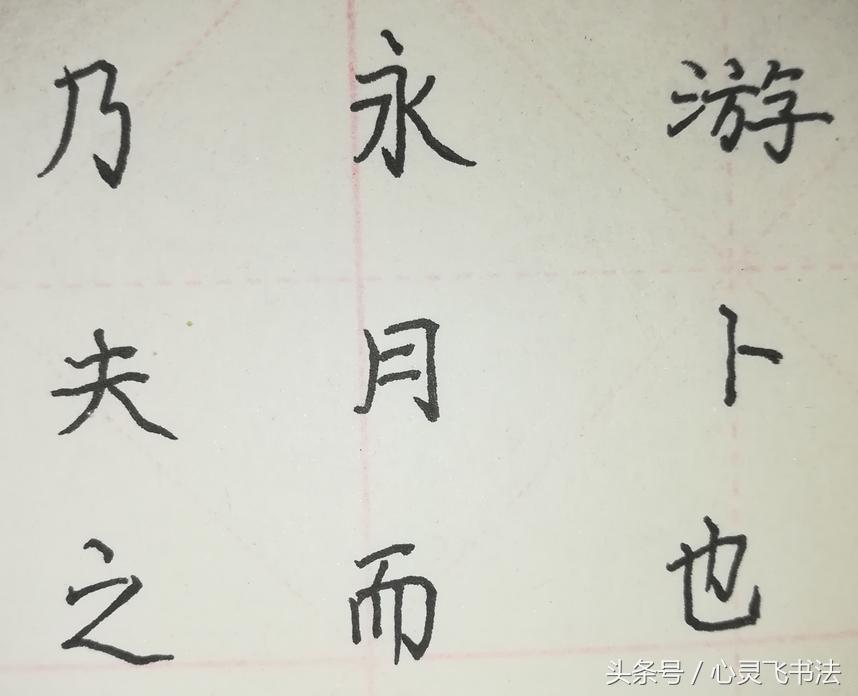 乃永游
夫月卜
之而也
头条号 / 心灵飞书法